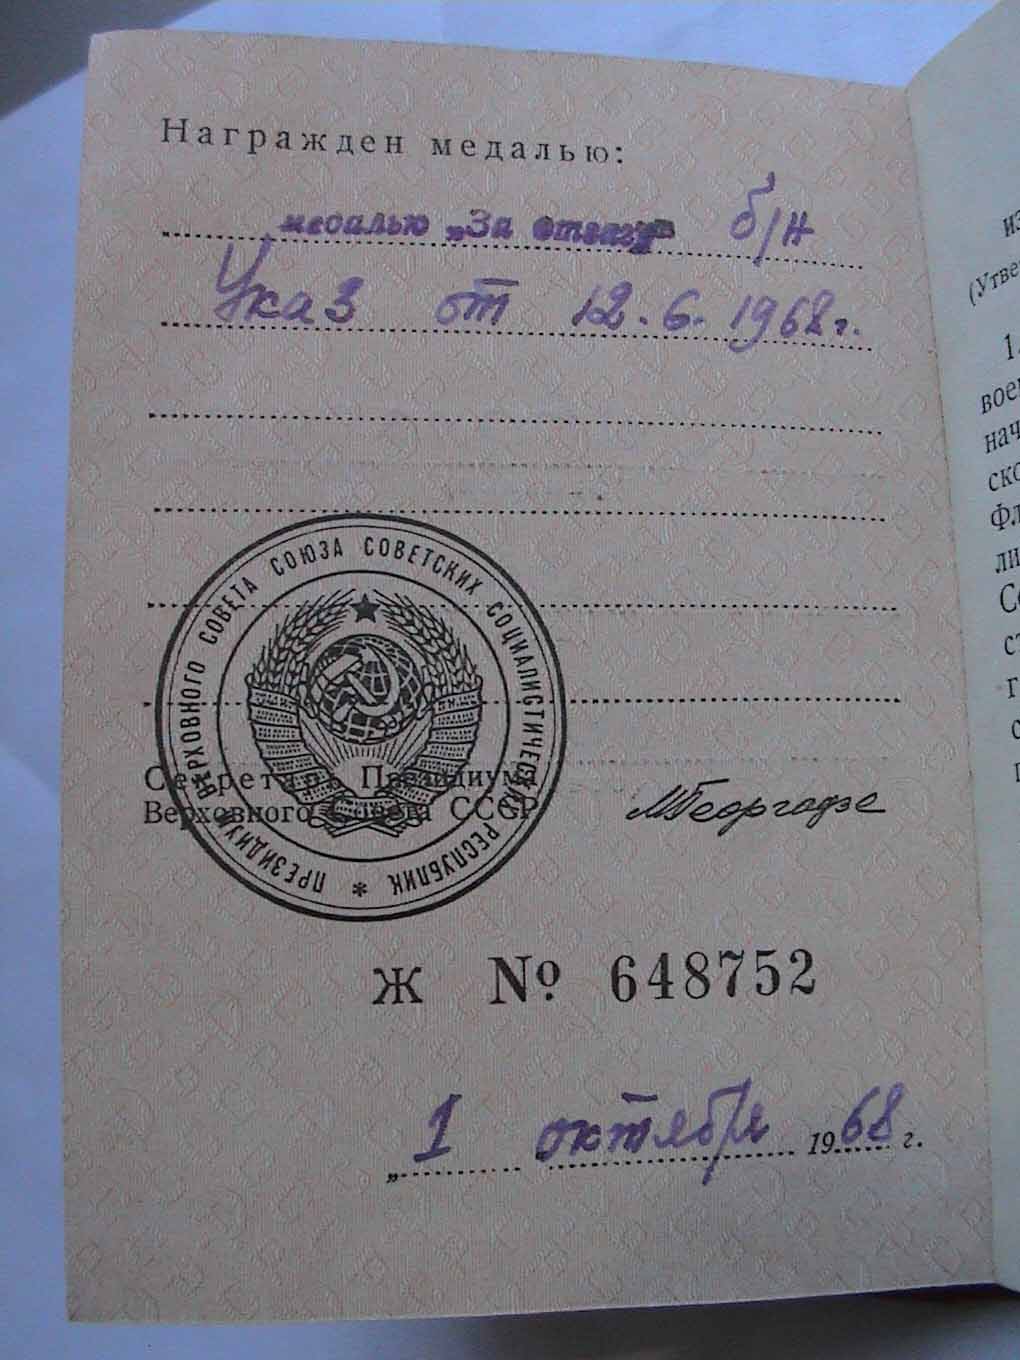 Награжден медалью:
медалью „За отвагу" б/н
Указ от 12.6.1968г.
ПРЕЗИДИУМ ВЕРХОВНОГО СОВЕТА СОЮЗА СОВЕТСКИХ СОЦИАЛИСТИЧЕСКИХ РЕСПУБЛИК *
Секретарь Президиума
Верховного Совета СССР
МГеоргадзе
Ж № 648752
„ 1 октября 1968 г.
из
(Утве
1.
вое
нач
ско
Фл
ли
Со
ст
г
с